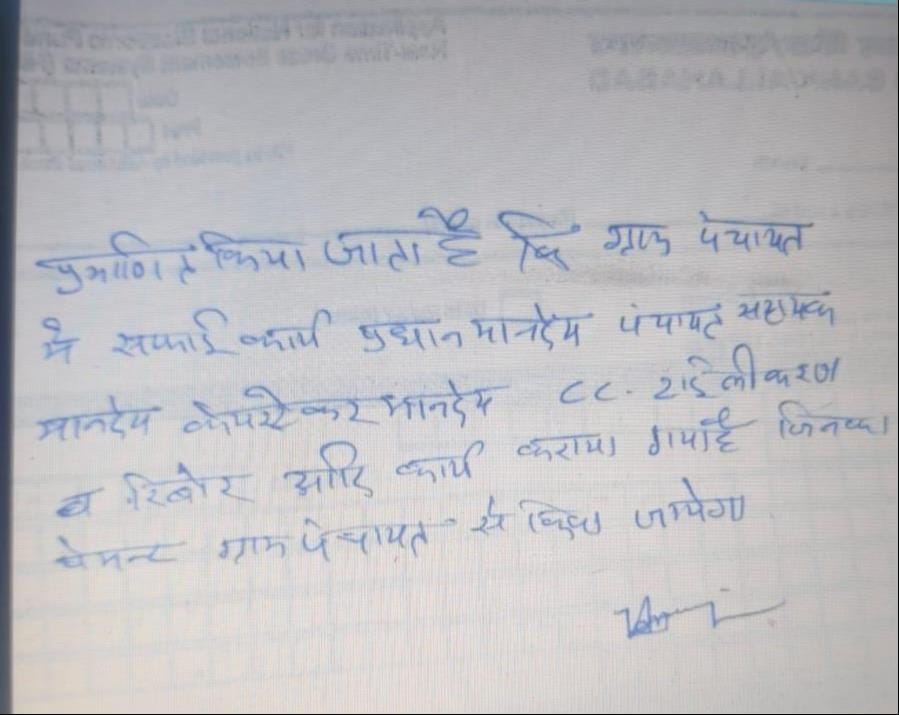 प्रमाणित किया जाता है कि ग्राम पंचायत
मे सफाई कार्य प्रधान मानदेय पंचायत सहायक
मानदेय केयरटेकर मानदेय CC. टाईलीकरण
व रिबोर आदि कार्य कराया गया है जिनका
पेमन्ट ग्राम पंचायत से किया जायेगा